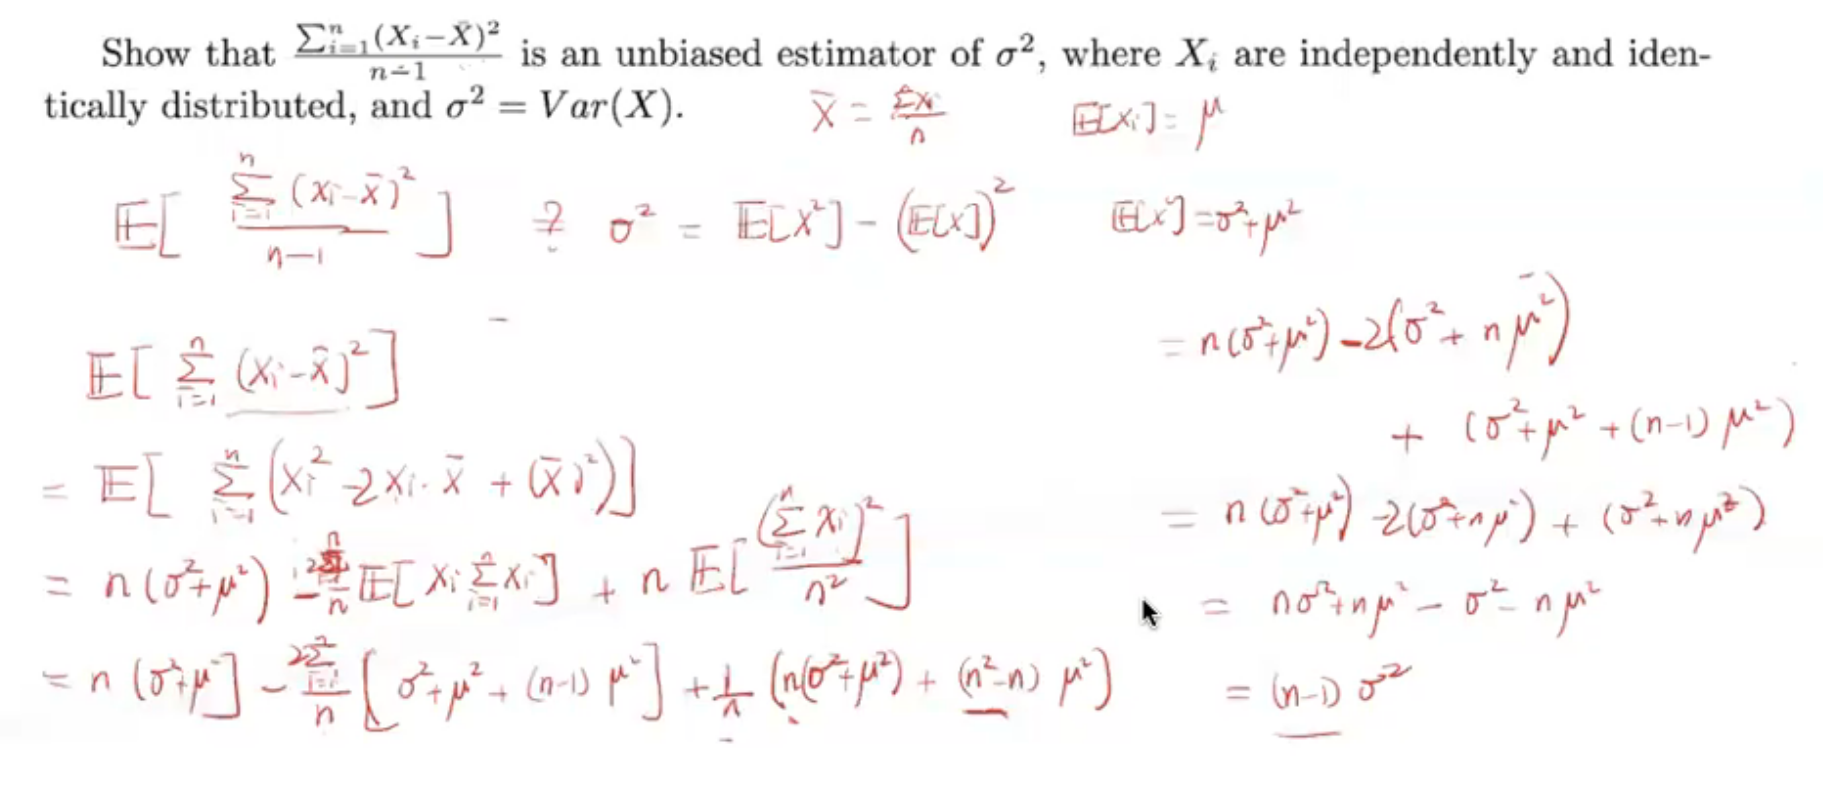 Show that \frac{\sum_{i=1}^{n}(X_i-\bar{X})^2}{n-1} is an unbiased estimator of σ², where X_i are independently and iden-
tically distributed, and σ² = Var(X).
\bar{X} = \frac{\sum X_i}{n}    𝔼[X_i] = μ
𝔼[ \frac{\sum_{i=1}^{n}(X_i-\bar{X})^2}{n-1} ]  ?  σ² = 𝔼[X²] - (𝔼[X])²    𝔼[X²] = σ²+μ²
𝔼[ \sum_{i=1}^{n} (X_i-\bar{X})² ]
= 𝔼[ \sum_{i=1}^{n} (X_i² - 2X_i·\bar{X} + (\bar{X})²) ]
= n(σ²+μ²) - \frac{2\sum_{i=1}^{n}}{n} 𝔼[ X_i \sum_{i=1}^{n} X_i ] + n 𝔼[ \frac{(\sum_{i=1}^{n} X_i)^2}{n^2} ]
= n(σ²+μ²] - \frac{2\sum_{i=1}^{n}}{n} [ σ²+μ² + (n-1) μ² ] + \frac{1}{n} (n(σ²+μ²) + (n²-n) μ²)
= n(σ²+μ²) - 2(σ² + nμ²)
+ (σ²+μ² + (n-1) μ²)
= n(σ²+μ²) - 2(σ²+nμ²) + (σ²+nμ²)
= nσ²+nμ² - σ² - nμ²
= (n-1) σ²